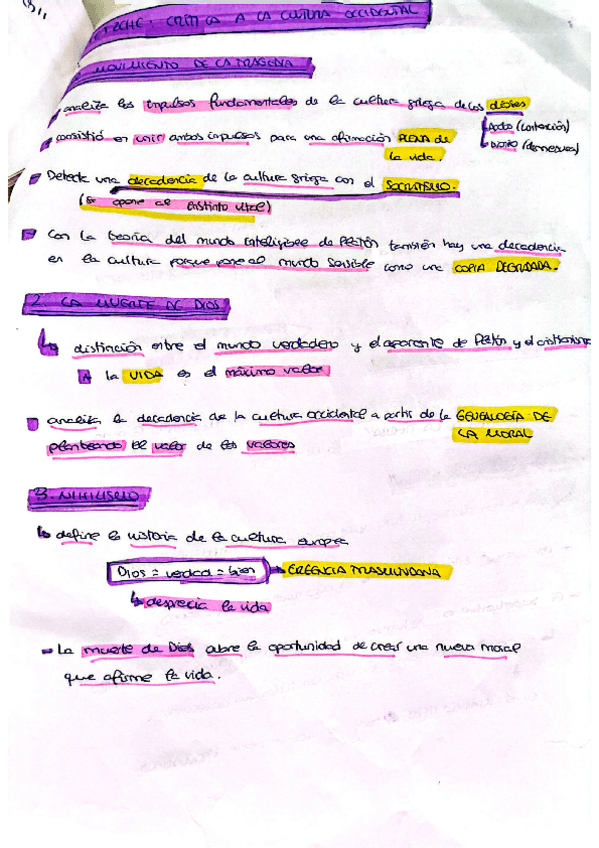 CRÍTICA A LA CULTURA OCCIDENTAL
MOVIMIENTO DE LA TRAGEDIA
analiza los impulsos fundamentales de la cultura griega de los dioses
Apolo (contención)
Dioniso (desmesura)
consistió en unir ambos impulsos para una afirmación PLENA de
la vida.
Detecta una decadencia de la cultura griega con el SOCRATISMO.
(Se opone al instinto vital)
con la teoría del mundo inteligible de Platón también hay una decadencia
en la cultura porque pone al mundo sensible como una COPIA DEGRADADA.
2. LA MUERTE DE DIOS
distinción entre el mundo verdadero y el aparente de Platón y el cristianismo
la VIDA es el máximo valor
analiza la decadencia de la cultura occidental a partir de la GENEALOGÍA DE
LA MORAL
planteando el valor de los valores
3. NIHILISMO
define la historia de la cultura europea
Dios = verdad = bien → CREENCIA TRASMUNDANA
desprecia la vida
La muerte de Dios abre la oportunidad de crear una nueva moral
que afirme la vida.